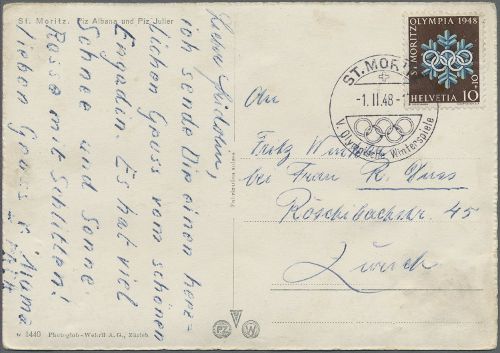 St. Moritz. Piz Albana und Piz Julier
ich sende Dir einen herz-
lichen Gruss vom schönen
Engadin. Es hat viel
Schnee und Sonne.
Rosse mit Schlitten!
lieben Gruss
v 1440 Photoglob-Wehrli A.G., Zürich
PZ W
ST. MORITZ OLYMPIA 1948
HELVETIA 10+10
ST. MORITZ
-1.II.48-1
V. Olympische Winterspiele
An
Fritz
bei Frau R.
Röschibachstr. 45
Zürich